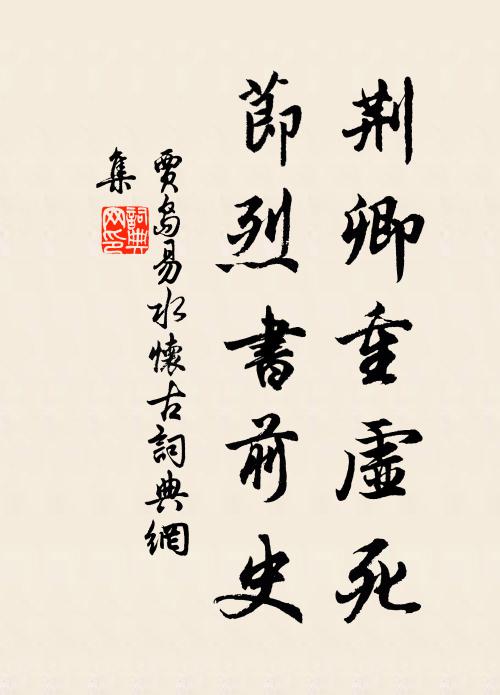 荆卿重虛死
節烈書前史
賈島易水懷古詞典網
集
詞典网印